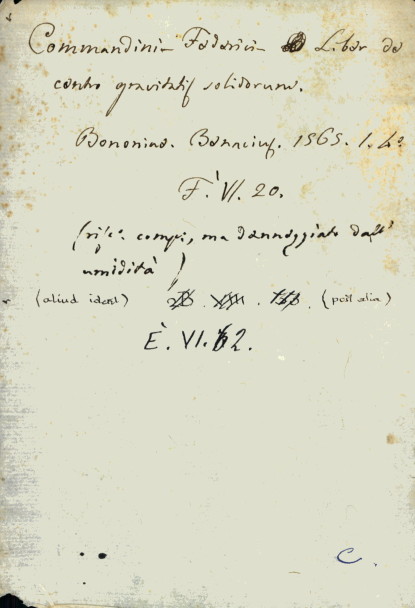 Commandini Federici Liber de
centro gravitatis solidorum.
Bononiae. Benacius. 1565. 1. 4°
F. VI. 20.
compi, ma danneggiato dall'
umidità)
(aliud ident) (post alia)
E. VI. 2.
C.